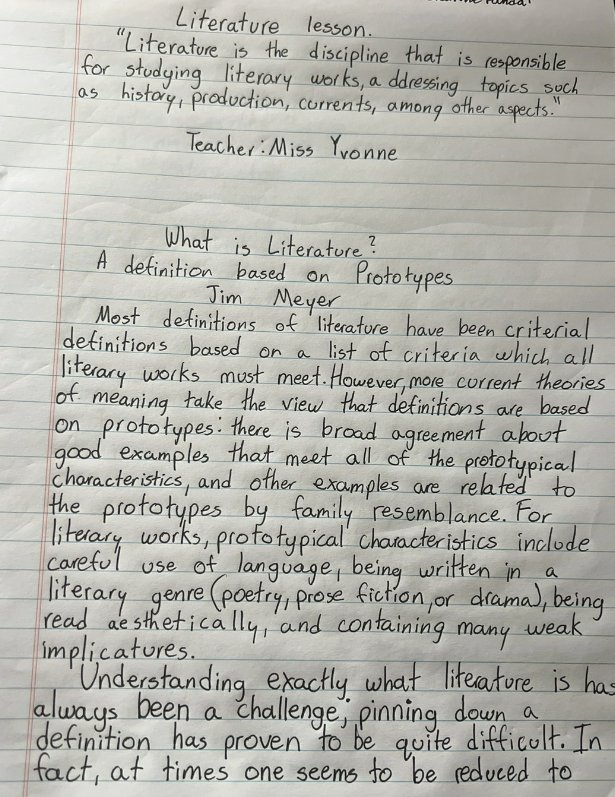 Literature lesson.
"Literature is the discipline that is responsible
for studying literary works, addressing topics such
as history, production, currents, among other aspects."
Teacher: Miss Yvonne
What is Literature?
A definition based on Prototypes
Jim Meyer
Most definitions of literature have been criterial
definitions based on a list of criteria which all
literary works must meet. However, more current theories
of meaning take the view that definitions are based
on prototypes: there is broad agreement about
good examples that meet all of the prototypical
characteristics, and other examples are related to
the prototypes by family resemblance. For
literary works, prototypical characteristics include
careful use of language, being written in a
literary genre (poetry, prose fiction, or drama), being
read aesthetically, and containing many weak
implicatures.
Understanding exactly what literature is has
always been a challenge; pinning down a
definition has proven to be quite difficult. In
fact, at times one seems to be reduced to